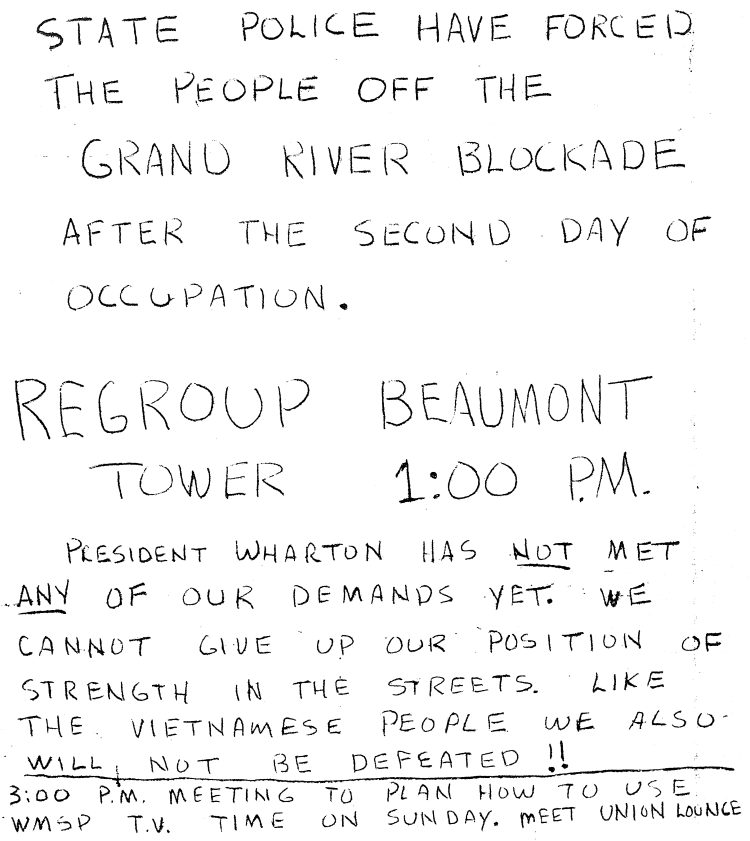 STATE POLICE HAVE FORCED
THE PEOPLE OFF THE
GRAND RIVER BLOCKADE
AFTER THE SECOND DAY OF
OCCUPATION.
REGROUP BEAUMONT
TOWER 1:00 P.M.
PRESIDENT WHARTON HAS NOT MET
ANY OF OUR DEMANDS YET. WE
CANNOT GIVE UP OUR POSITION OF
STRENGTH IN THE STREETS. LIKE
THE VIETNAMESE PEOPLE WE ALSO
WILL NOT BE DEFEATED !!
3:00 P.M. MEETING TO PLAN HOW TO USE
WMSP T.V. TIME ON SUNDAY. MEET UNION LOUNGE